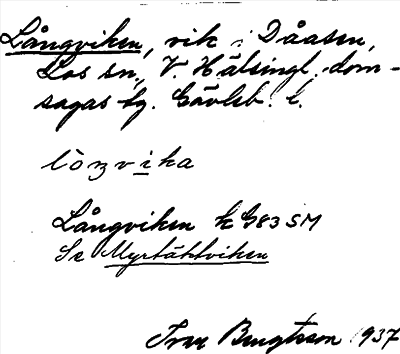 Långviken, vik i Dåasen,
Los sn, V. Hälsingl. dom-
sagas tg. Gävleb. l.
Långviken k G83 SM
Se Myrtäktviken
Bengtsson 1937